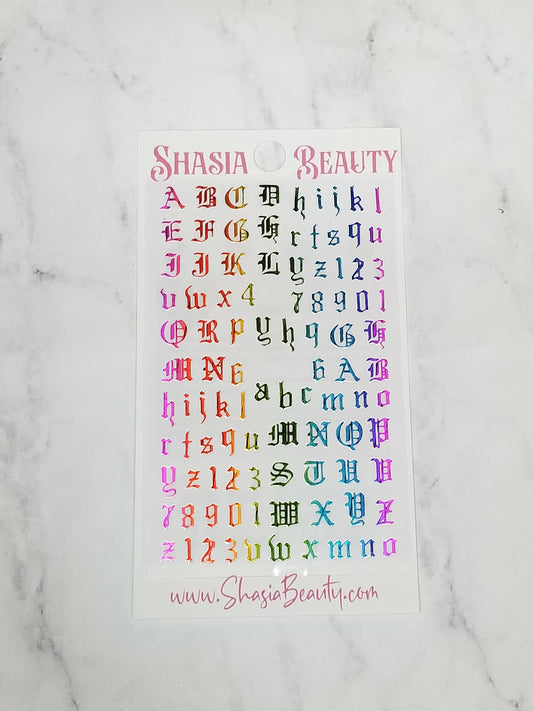 SHASIA BEAUTY
A B C D h i j k l
E F G H r t s q u
I J K L y z 1 2 3
v w x 4 7 8 9 0 1
Q R P y h q G H
M N 6 6 A B
h i j k l a b c m n o
r t s q u M N Q P
y z 1 2 3 S T U V
7 8 9 0 1 W X Y Z
z 1 2 3 v w x m n o
www.ShasiaBeauty.com